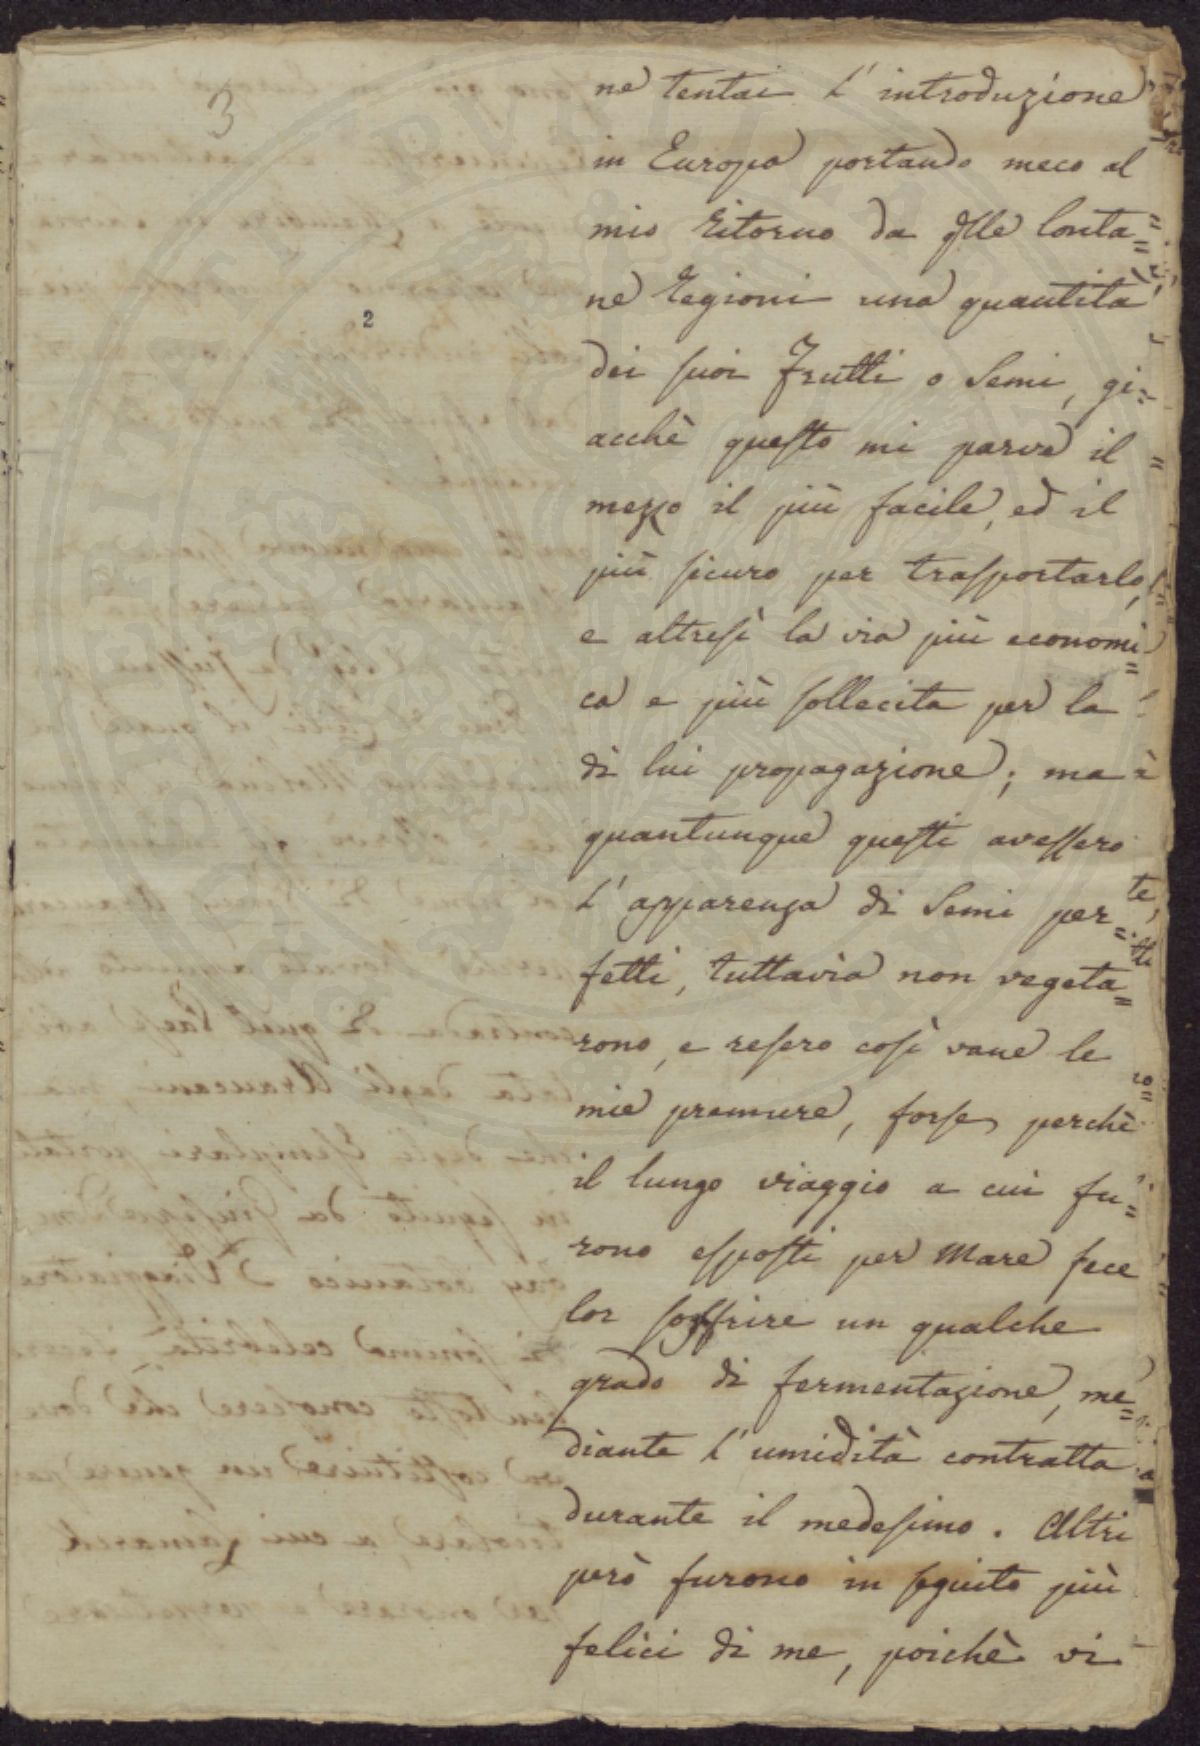 3
2
ne tentai l'introduzione
in Europa portando meco al
mio ritorno da qlle lonta=
ne regioni una quantità
dei suoi frutti o Semi, gi=
acchè questo mi parve il
mezzo il più facile, ed il
più sicuro per trasportarlo,
e altresì la via più economi=
ca e più sollecita per la
di lui propagazione; ma
quantunque questi avessero
l'apparenza di Semi per=
fetti, tuttavia non vegeta=
rono, e resero così vane le
mie premure, forse perchè
il lungo viaggio a cui fu=
rono esposti per Mare fece
lor soffrire un qualche
grado di fermentazione, me=
diante l'umidità contratta
durante il medesimo. Altri
però furono in seguito più
felici di me, poichè vi